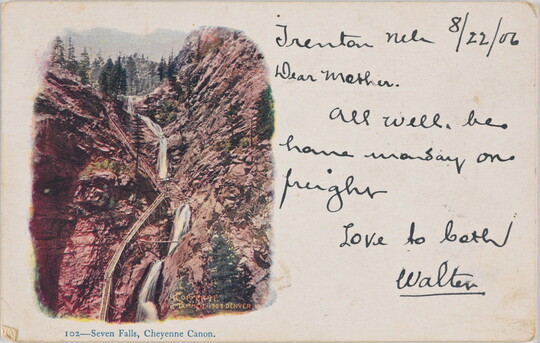 Trenton Neb 8/22/06
Dear Mother.
All well. be
home monday on
freight
Love to both
Walter
COPYRIGHT
DENVER
102—Seven Falls, Cheyenne Canon.